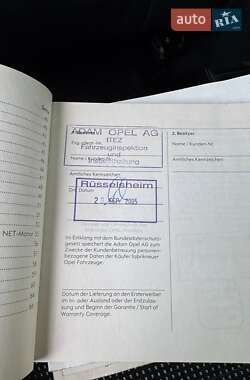 auto RIA.com
ADAM OPEL AG
ITEZ
Fahrzeuginspektion
und
Name / Kunden-Nr.
Amtliches Kennzeichen
Rüsselsheim
2005
2. Besitzer
Name / Kunden-Nr.
Amtliches Kennzeichen
NET-Motor
Im Einklang mit dem Bundesdatenschutz-
gesetz speichert die Adam Opel AG zum
Zwecke der Kundenbetreuung personen-
bezogene Daten der Käufer fabrikneuer
Opel Fahrzeuge.
Datum der Lieferung an den Ersterwerber
im In- oder Ausland oder der Erstzulas-
sung und Beginn der Garantie / Start of
Warranty Coverage.